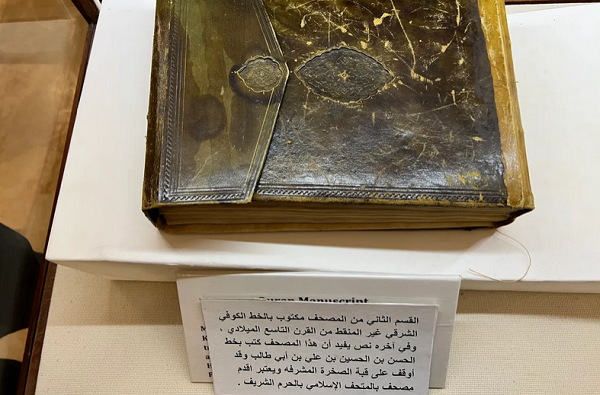 Quran Manuscript
القسم الثاني من المصحف مكتوب بالخط الكوفي
الشرقي غير المنقط من القرن التاسع الميلادي ،
وفي آخره نص يفيد أن هذا المصحف كتب بخط
الحسن بن الحسين بن علي بن أبي طالب وقد
أوقف على قبة الصخرة المشرفه ويعتبر اقدم
مصحف بالمتحف الإسلامي بالحرم الشريف .